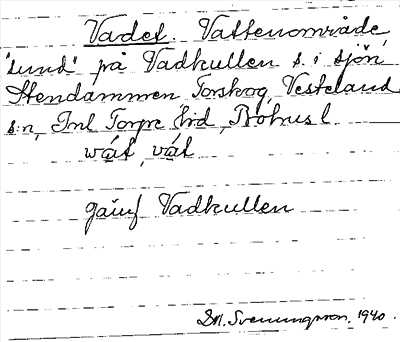 Vadet. Vattenområde
"sund" på Vadkullen s. i sjön
Stendammen Torskog, Vesteland
s:n, Inl Torpe hd, Bohusl.
wát, vát
jämf Vadkullen
S.M. Svenungsson, 1940.